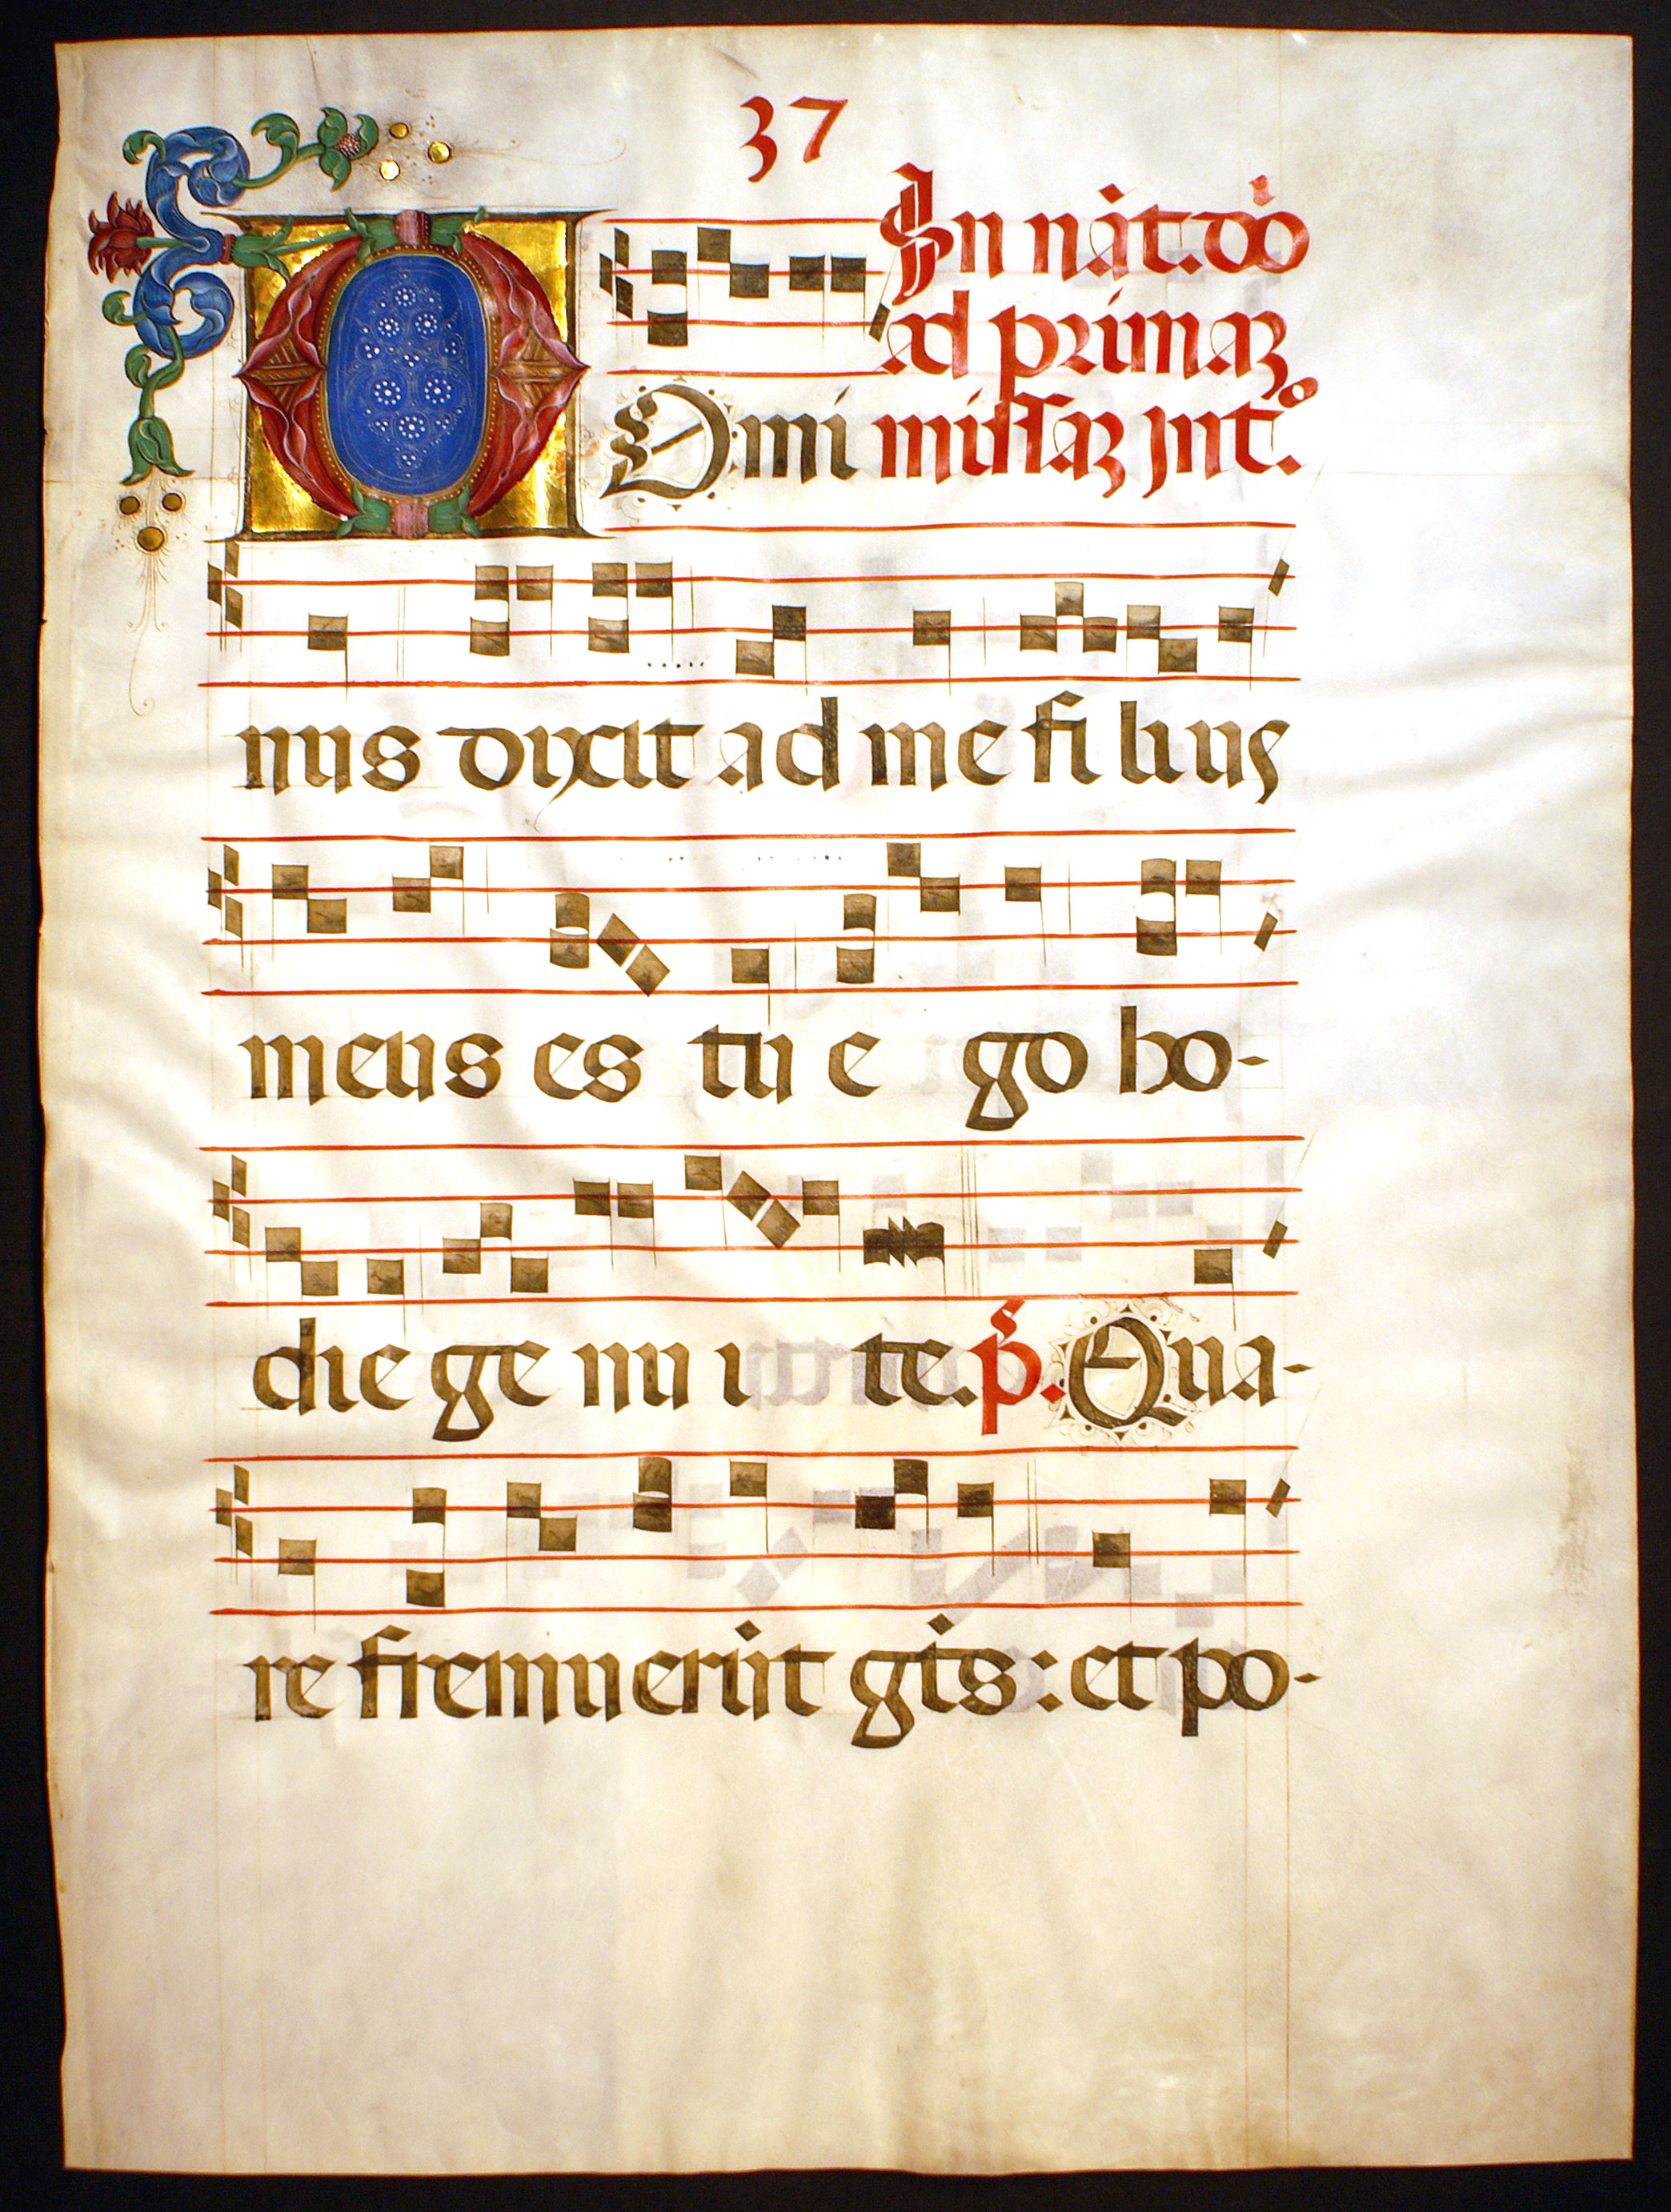 37
In nāt. dō
ad primaꝝ
D Omi missaꝝ Int.º
nus dixit ad me fi lius
meus es tu e go ho-
die ge nu i te. pˢ. Qua-
re fremuerūt gētes: et po-